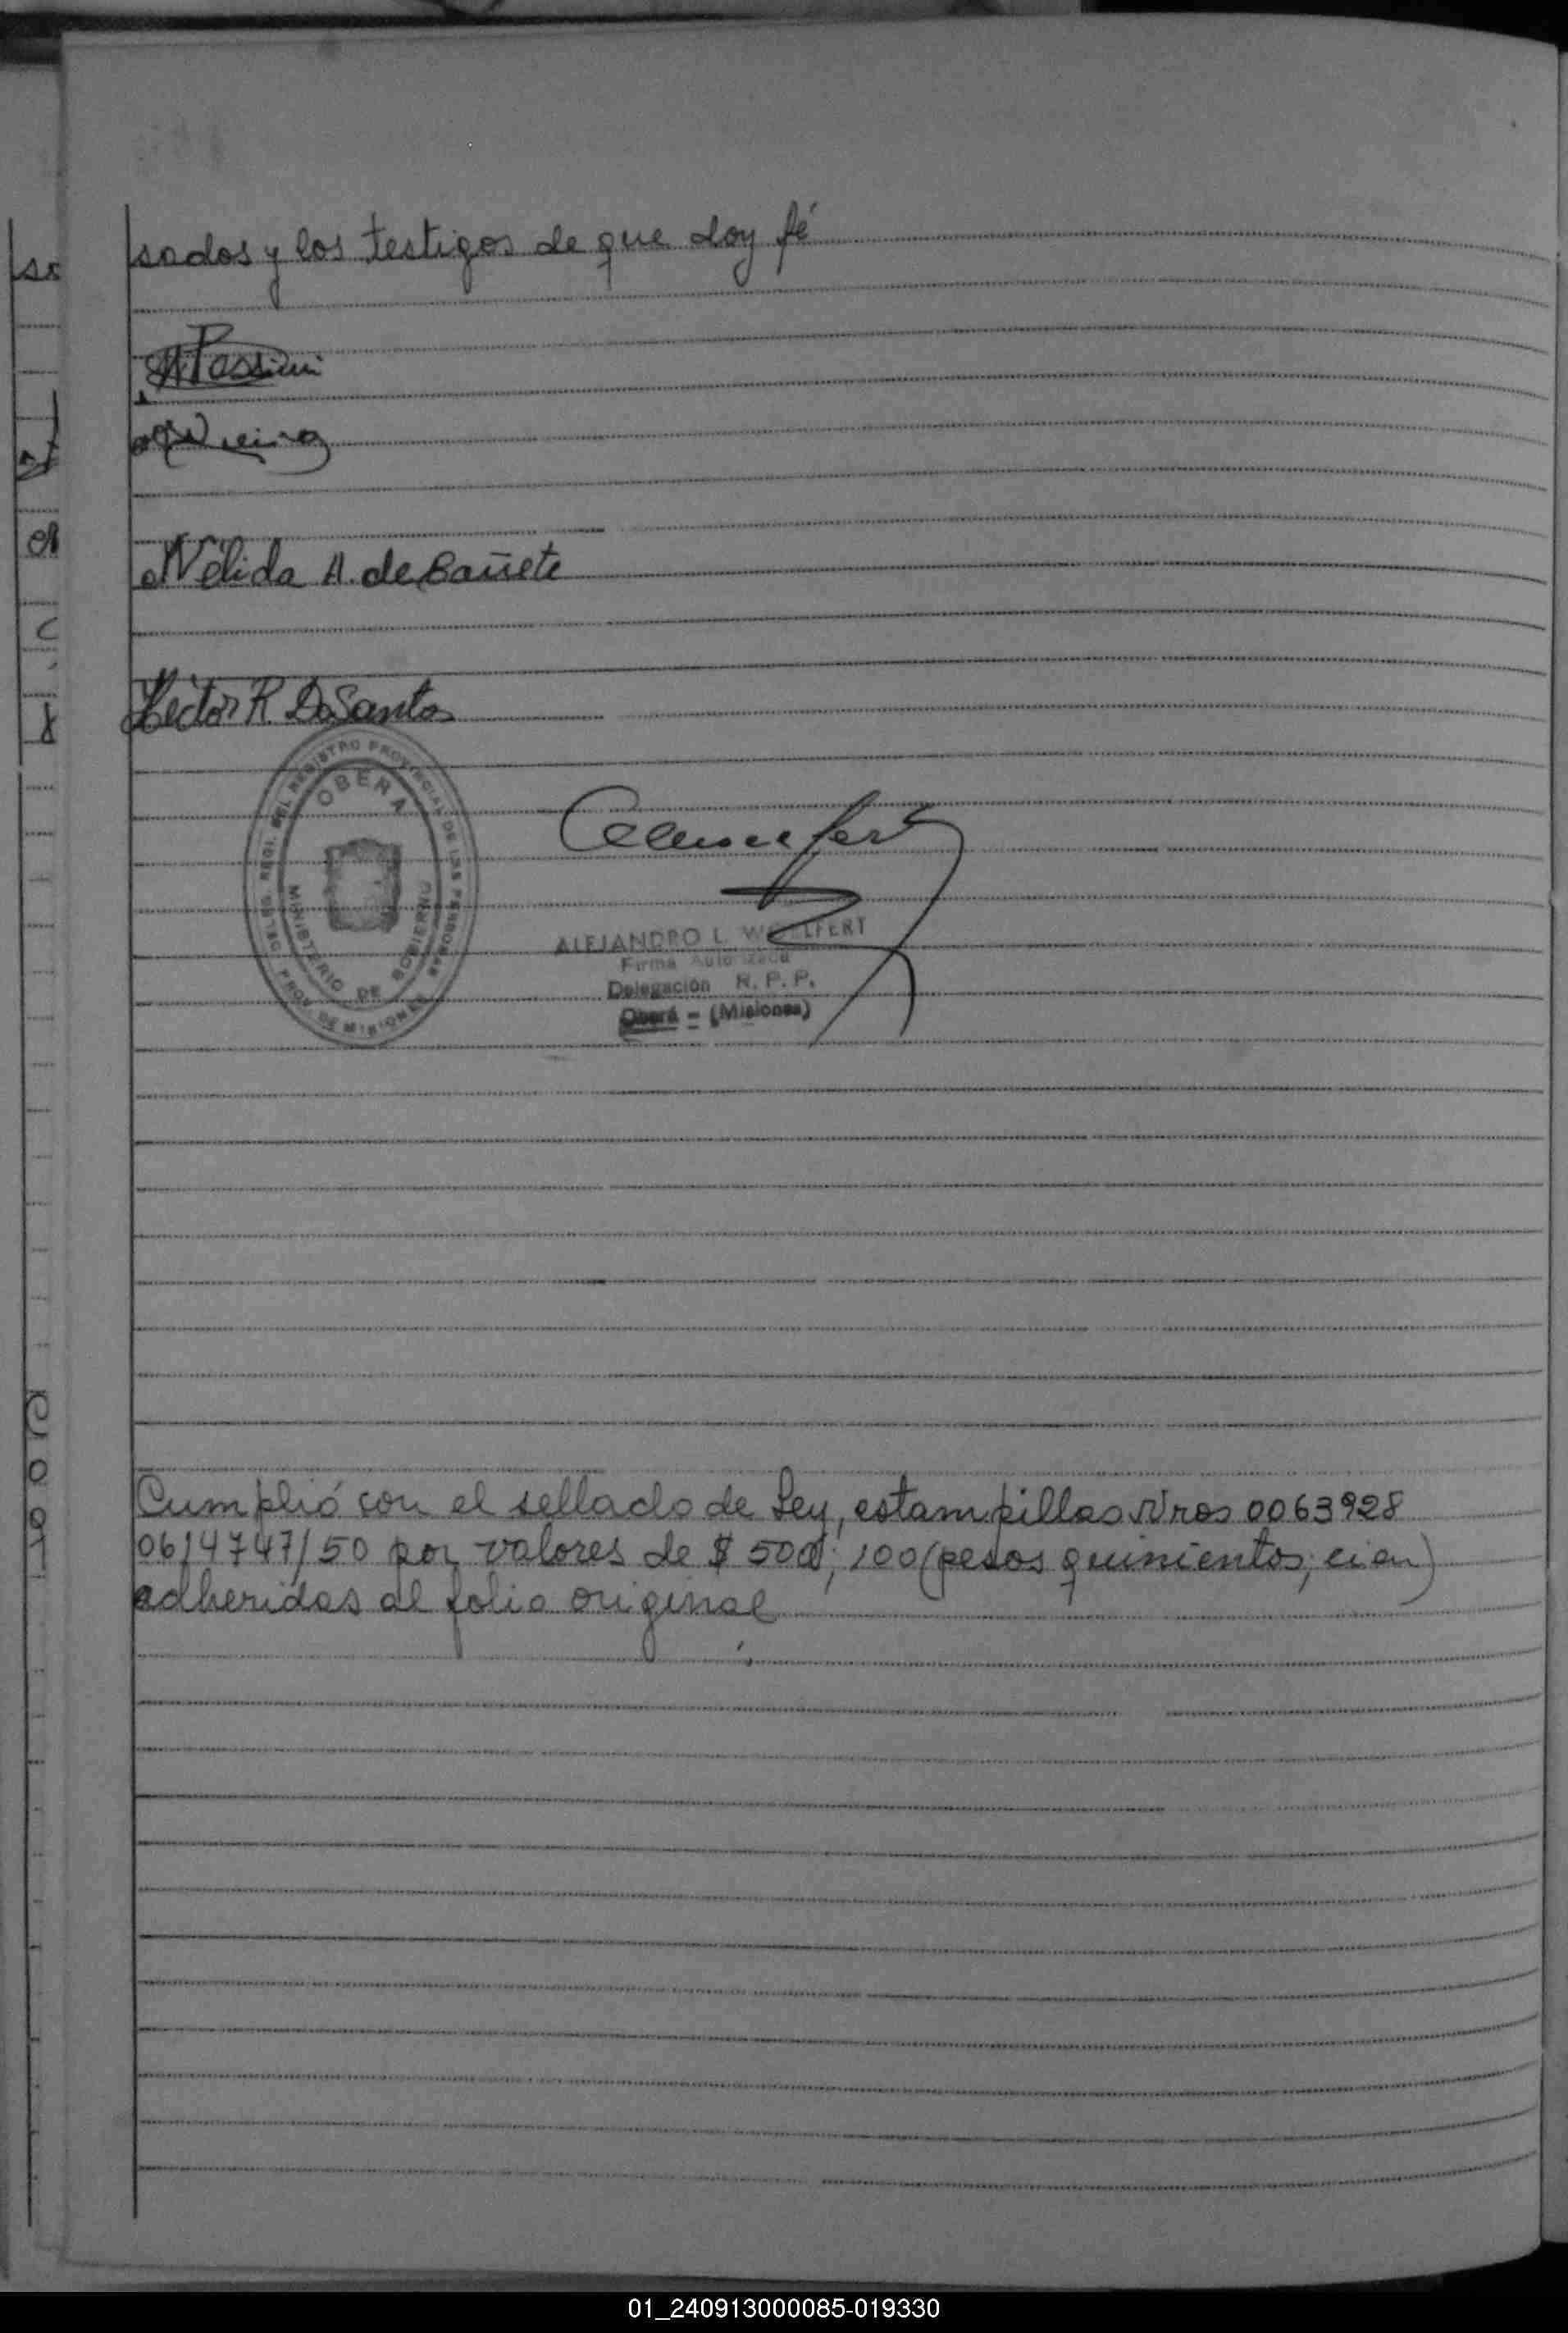 sados y los testigos de que doy fé
Nélida A. de Cañete
Héctor R. DoSantos
OBERA
MINISTERIO DE GOBIERNO
REGISTRO PROVINCIAL DE LAS PERSONAS
PROV. DE MISIONES
ALEJANDRO L. W
Firma Autorizada
Delegación R. P. P.
Oberá - (Misiones)
Cumplió con el sellado de Ley, estampillas Nros 0063928
0614747/50 por valores de $ 500; 100 (pesos quinientos; cien)
adheridas al folio original
01_240913000085-019330